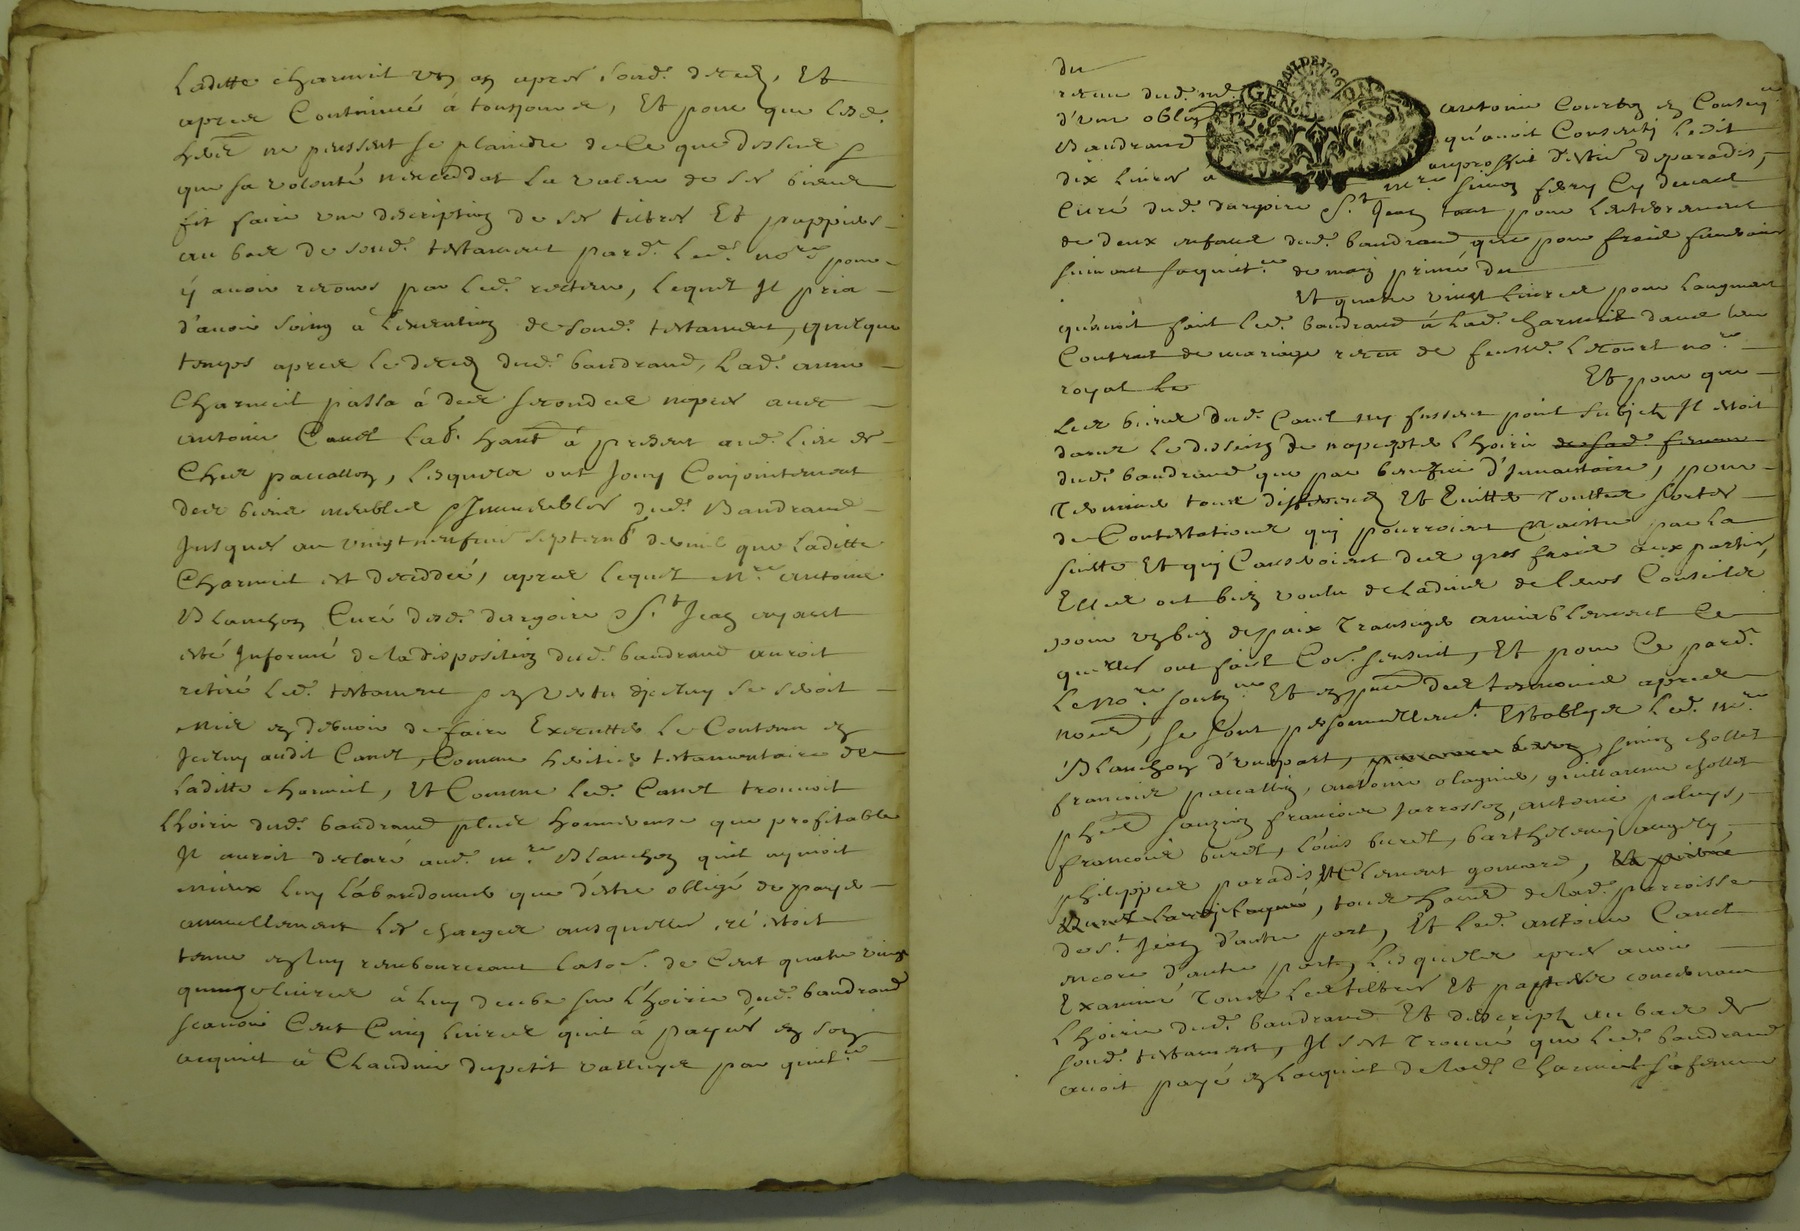 Laditte charmeil un an apres sond. deces, Et
apres Continué à tousjours, Et pour que lesd.
her. ne peussent se plaindre de ce que dessus &
que sa volonté n'exceddat la valeur de ses biens
fit faire une description de ses tiltres Et pappiers
au bas de sond. testament pard. led. no.re pour
y avoir recours par led. recteur, lequel Il pria
d'avoir soing à l'exention de sond. testament, quelque
temps apres le deces dud. baudrand, Lad. anne
Charmeil passa à des secondes nopces avec
antoine Canel lab. hant à present aud. lieu de
Chez paccallon, lesquels ont jouy Conjointement
des biens meubles & Immeubles dud. Baudrand
Jusques au vingt neufme septemb. dernier que laditte
Charmeil est deceddée, apres lequel m.re antoine
Blanchon Curé dud. dargoire & S.t Jean ayant
esté Informé de la disposition dud. baudrand auroit
retiré led. testament & en vertu djceluy se seroit
mis en debvoir de faire Executter le Contenu en
Jceluy audit Canel, Comme heritier testamentaire de
laditte charmeil, Et Comme led. Canel trouvoit
l'hoirie dud. baudrand plus honnereuse que profitable
Il auroit declaré aud. m.re Blanchon quil aymoit
mieux luy l'abandonner que d'estre obligé de payer
annuellement les charges ausquelles elle estoit
tenue en luy remboursant la so. de Cent quatre vingt
quinze livres à luy deube sur l'hoirie dud. baudrand
scavoir Cent Cinq livres quil a payés en son
acquit à Claudine dupetit par quit.ce
du
receu dud. m.e antoine Courbon en Conseq.ce
d'une oblig. qu'avoit Consenty ledit
Baudrand au proffit d'estiene deparadis,
dix livres a m.re simon fery Cy devant
Curé dud. dargoire S.t Jean tant pour l'enterrement
de deux enfans dud. baudrand que pour frais funeraire
suivant saquit.ce de main privé du
Et quatre vingt livres pour laugment
qu'avoit fait led. baudrand à lad. charmeil dans leur
Contrat de mariage receu de feu m.e no.re
royal le Et pour que
les biens dud. Canel ny fussent point subjets Il estoit
dans le dessein de n'accepter lhoirie
dud. baudrand que par beneffice d'Inventaire, pour
Terminer tous differends Et Evitter Touttes sortes
de Contestations qui pourroient Naistre par la
suitte Et qui Causeroient des gros frais aux parties,
Elles ont bien voulu de ladvis de leurs Conseils
pour un bien de paix Transiger amiablement Ce
quelles ont fait Co. sensuit, Et pour Ce pard.
Le no.re soubz.né Et en p.nce des tesmoins apres
només, se sont personnellem.t Establyes led. m.re
Blanchon d'une part, simon chollet
francois paccallin, antoine olagnier, guillaume chollet
francois jarrosson, antoine paluys,
francois burel, Louis burel, barthelemy
philippes paradis, Et Clement gonnard,
tous hants de lad. parroisse
de S.t Jean d'autre part, Et led. antoine Canel
encore d'autre part, Lesquels apres avoir
Examiné Tous Les tiltres Et pappiers concernant
Lhoirie dud. baudrand Et descripts au bas de
sond. testament, Il sest Trouvé que led. baudrand
avoit payé en lacquit de lad. Charmeil sa femme